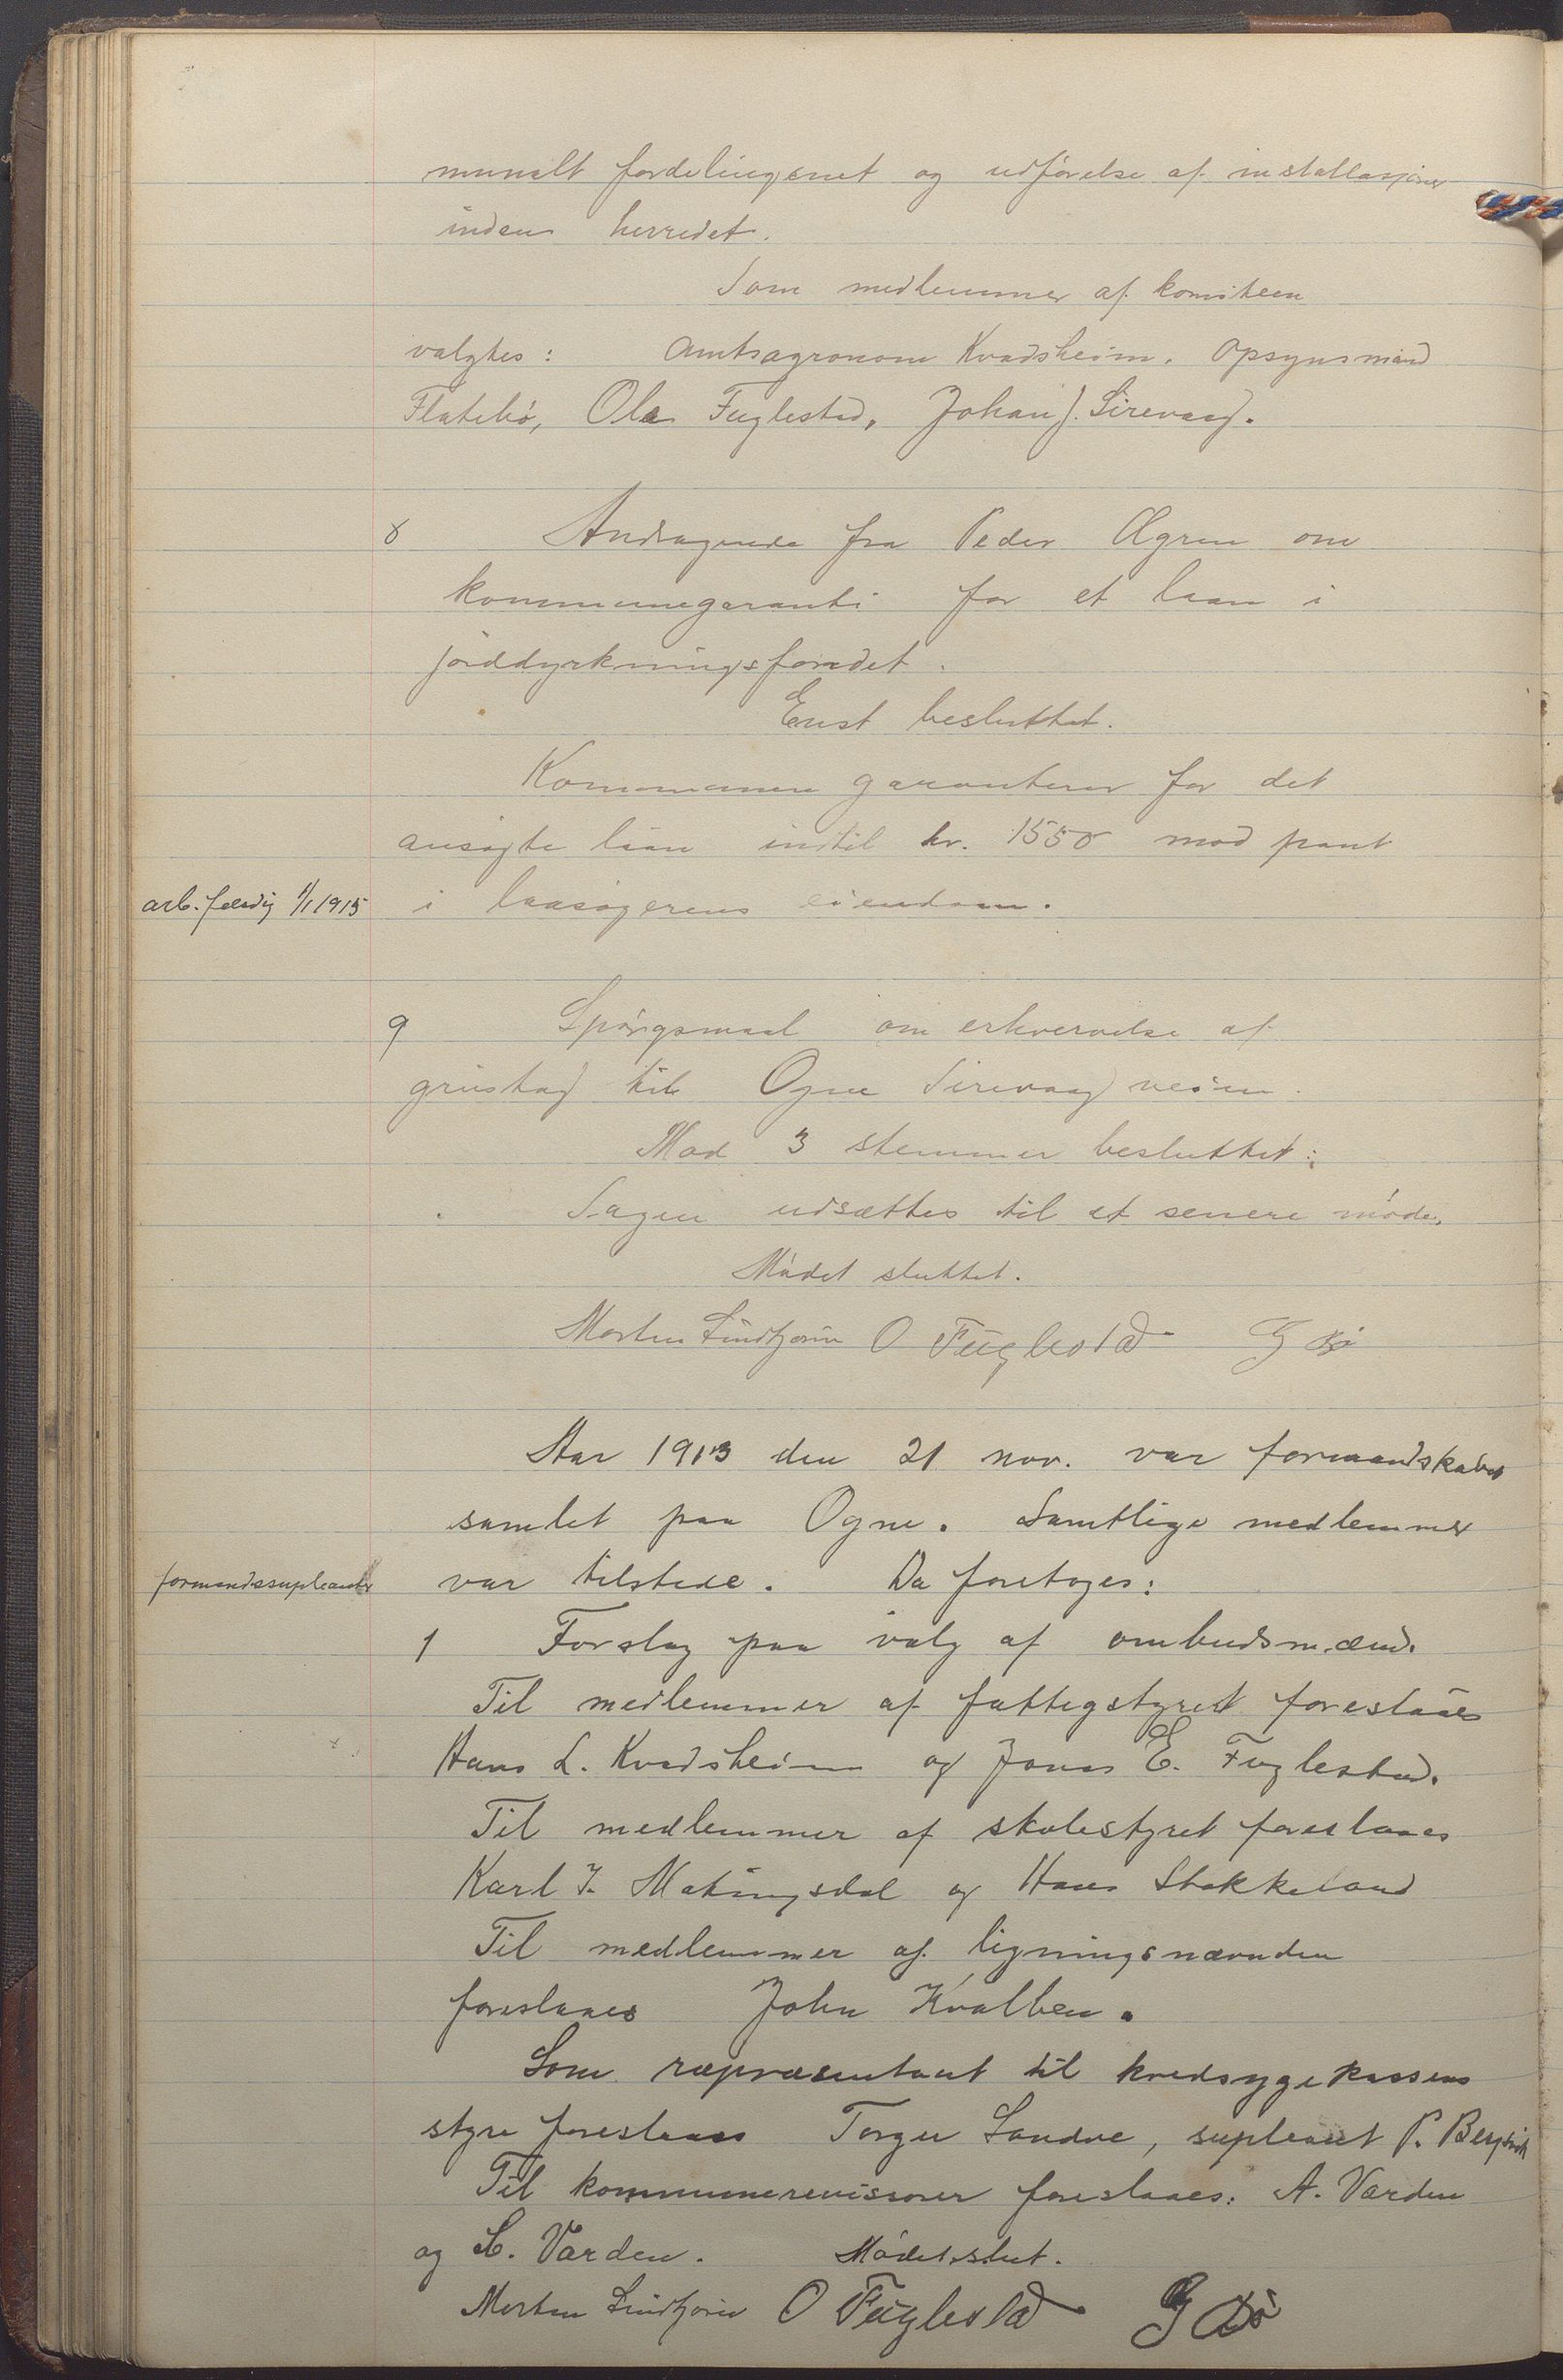 munalt fordelingsnet og udførelse af installasjoner
inden herredet.
Som medlemmer af komiteen
valgtes: Amtsagronom Kvadsheim, Opsynsmand
Flatebø, Ola Fuglestad, Johan J. Sirevaag.
8 Andragende fra Peder Ægren om
kommunegaranti for et laan i
jorddyrkningsfondet.
Enst besluttet.
Kommunen garanterer for det
ansøgte laan indtil kr. 1550 mod pant
arb. færdig 1/1 1915 i laansøgerens eiendom.
9 Spørgsmaal om erhvervelse af
grustag til Ogne Sirevaag veien.
Mod 3 stemmer besluttet:
Sagen udsættes til et senere møde.
Mødet sluttet.
Morten Lindtjørn O Fuglestad G Bø
Aar 1913 den 21 nov. var formandskabet
samlet paa Ogne. Samtlige medlemmer
formandssupleanter var tilstede. Da foretoges:
1 Forslag paa valg af ombudsmænd.
Til medlemmer af fattigstyret foreslaaes
Hans L. Kvadsheim og Jonas E. Fuglestad.
Til medlemmer af skolestyret foreslaaes
Karl J. Matingsdal og Hans Stokkeland
Til medlemmer af ligningsnævnden
foreslaaes John Kvalben.
Som repræsentant til kredssygekassens
styre foreslaaes Torger Sandve, supleant P.
Til kommunerevisorer foreslaaes: A. Varden
og L. Varden. Mødet slut.
Morten Lindtjørn O Fuglestad G Bø